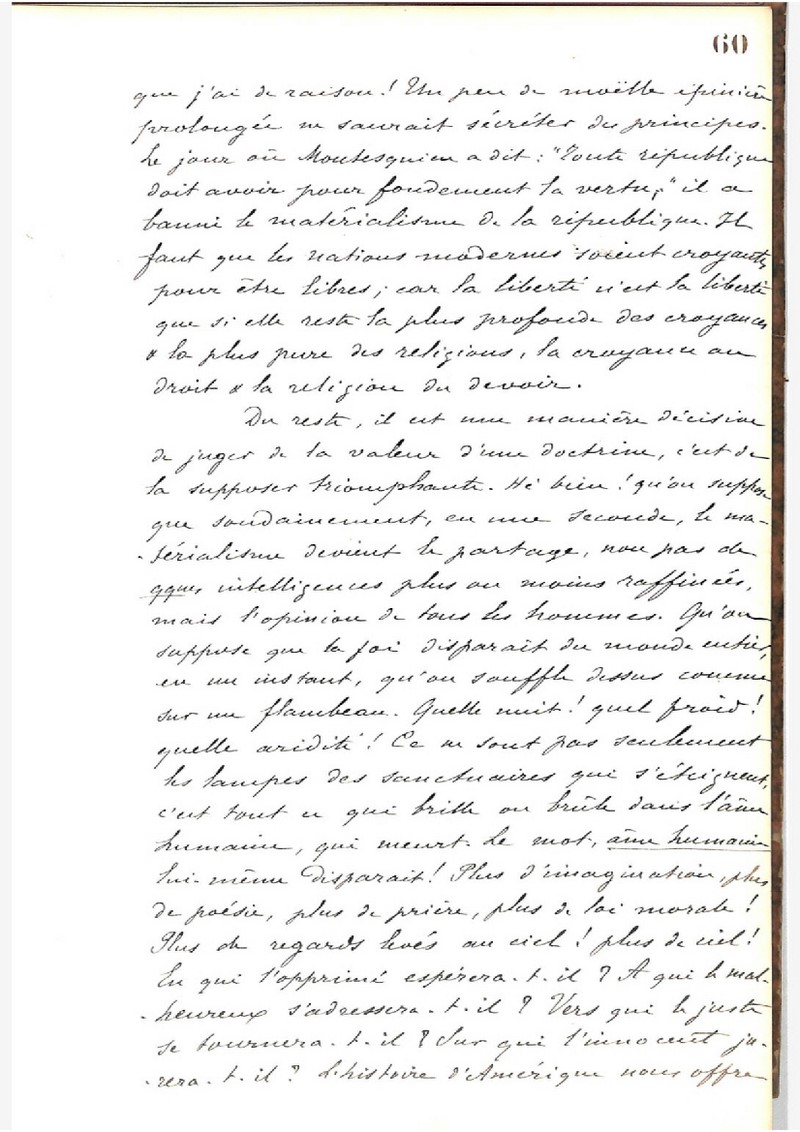 60
que j'ai de raison! Un peu de moëlle épinière
prolongée ne saurait sécréter des principes.
Le jour où Montesquieu a dit : "Toute république
doit avoir pour fondement la vertu," il a
banni le matérialisme de la république. Il
faut que les nations modernes soient croyantes
pour être libres; car la liberté n'est la liberté
que si elle reste la plus profonde des croyances
& la plus pure des religions, la croyance au
droit & la religion du devoir.
Du reste, il est une manière décisive
de juger de la valeur d'une doctrine, c'est de
la supposer triomphante. Hé bien! qu'on suppose
que soudainement, en une seconde, le ma-
-térialisme devient le partage, non pas de
qques intelligences plus ou moins raffinées,
mais l'opinion de tous les hommes. Qu'on
suppose que la foi disparait du monde entier,
en un instant, qu'on souffle dessus comme
sur un flambeau. Quelle nuit! quel froid!
quelle aridité! Ce ne sont pas seulement
les lampes des sanctuaires qui s'éteignent,
c'est tout ce qui brille ou brûle dans l'âme
humaine, qui meurt. Le mot, âme humaine
lui-même disparait! Plus d'imagination, plus
de poésie, plus de prière, plus de loi morale!
Plus de regards levés au ciel! plus de ciel!
En qui l'opprimé espérera-t-il? A qui le mal-
-heureux s'adressera-t-il? Vers qui le juste
se tournera-t-il? Sur qui l'innocent ju-
-rera-t-il? L'histoire d'Amérique nous offre